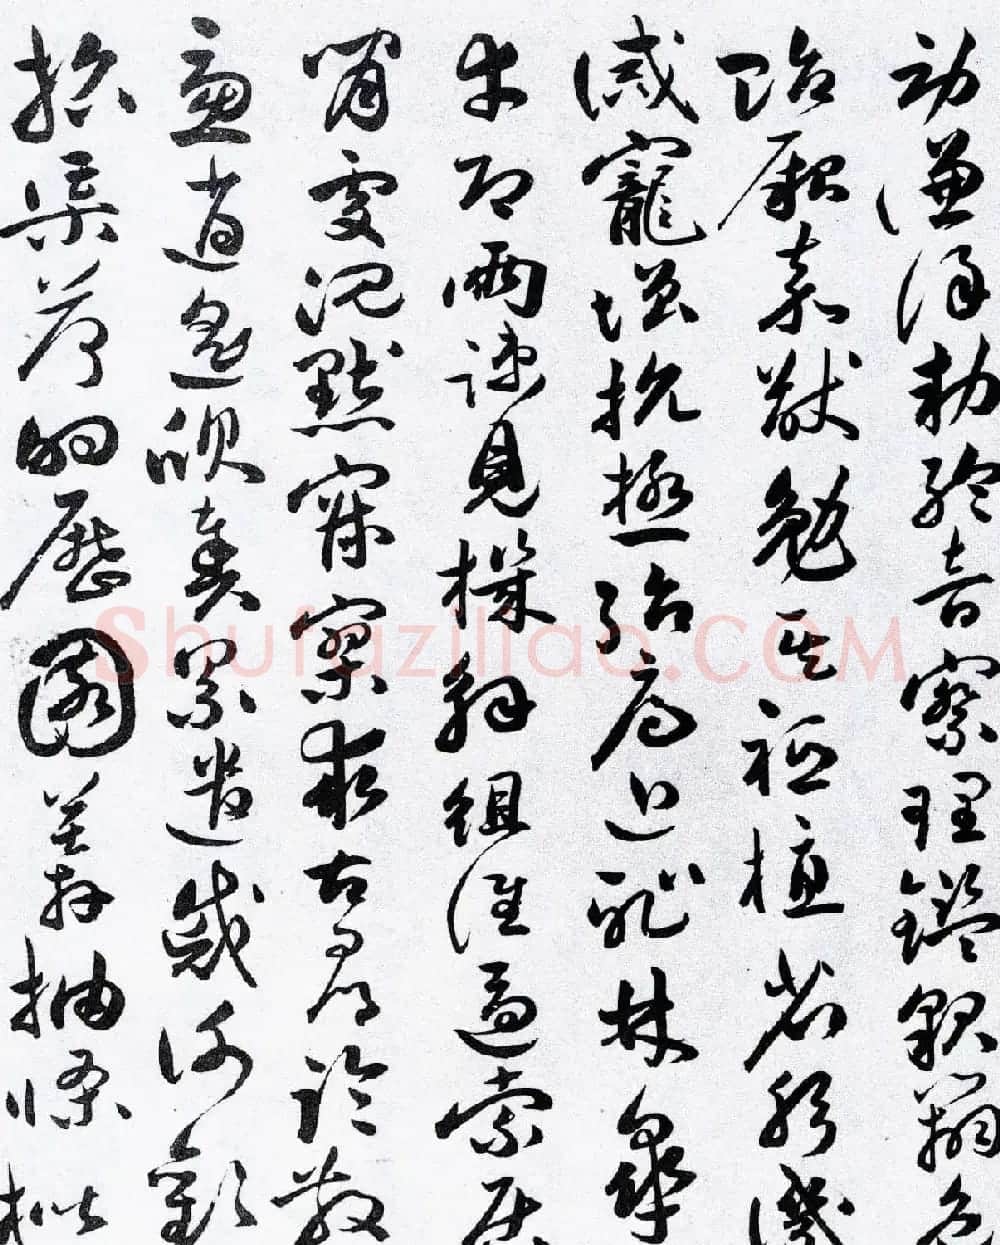 勞謙謹勅聆音察理鑑貌辯色
貽厥嘉猷勉其祗植省躬譏
誡寵增抗極殆辱近恥林皋
幸即兩疏見機解組誰逼索居
閑處沉默寂寥求古尋論散
慮逍遙欣奏累遣慼謝歡
招渠荷的歷園莽抽條枇
Shufaziliao.COM